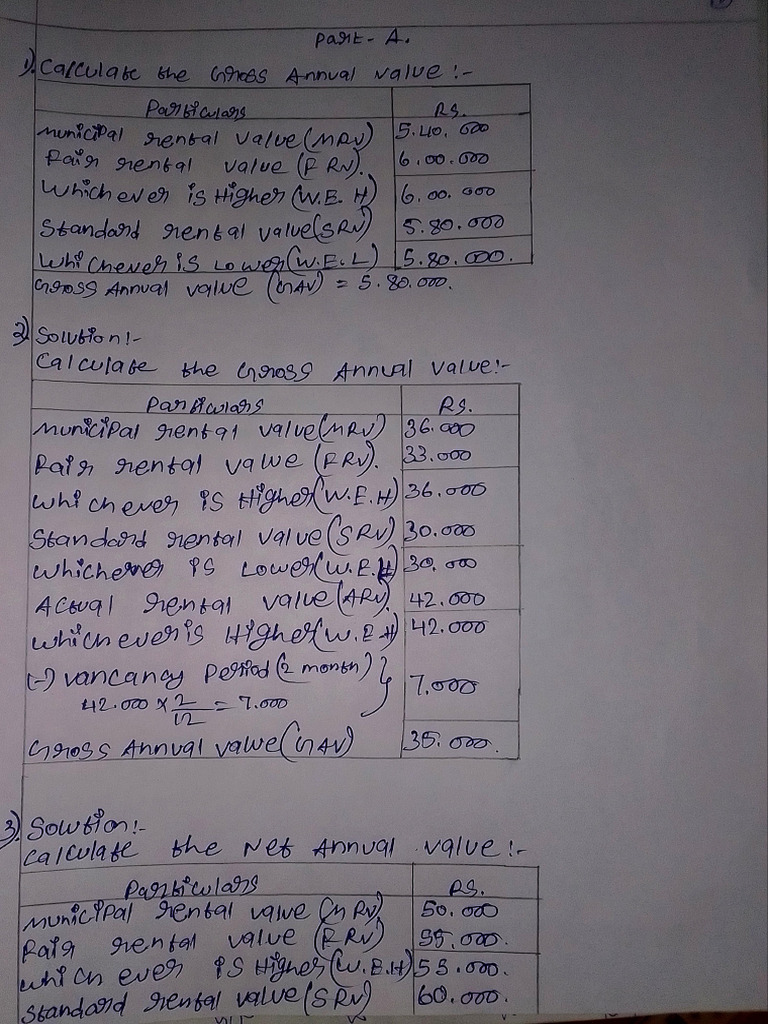 Part - A.
1) Calculate the Gross Annual value :-
Particulars Rs.
Municipal rental value (MRV) 5.40.000
Fair rental value (FRV). 6.00.000
Whichever is Higher (W.E.H) 6.00.000
Standard rental value (SRV) 5.80.000
Whichever is Lower (W.E.L) 5.80.000.
Gross Annual value (GAV) = 5.80.000.
2) Solution :-
Calculate the Gross Annual value :-
Particulars Rs.
Municipal rental value (MRV) 36.000
Fair rental value (FRV). 33.000
Whichever is Higher (W.E.H) 36.000
Standard rental value (SRV) 30.000
Whichever is Lower (W.E.L) 30.000
Actual rental value (ARV) 42.000
Whichever is Higher (W.E.H) 42.000
(-) vancancy Period (2 month)
42.000 x 2/12 = 7.000 } 7.000
Gross Annual value (GAV) 35.000.
3) Solution :-
Calculate the Net Annual value :-
Particulars Rs.
Municipal rental value (MRV) 50.000
Fair rental value (FRV) 55.000.
Which ever is Higher (W.E.H) 55.000.
Standard rental value (SRV) 60.000.